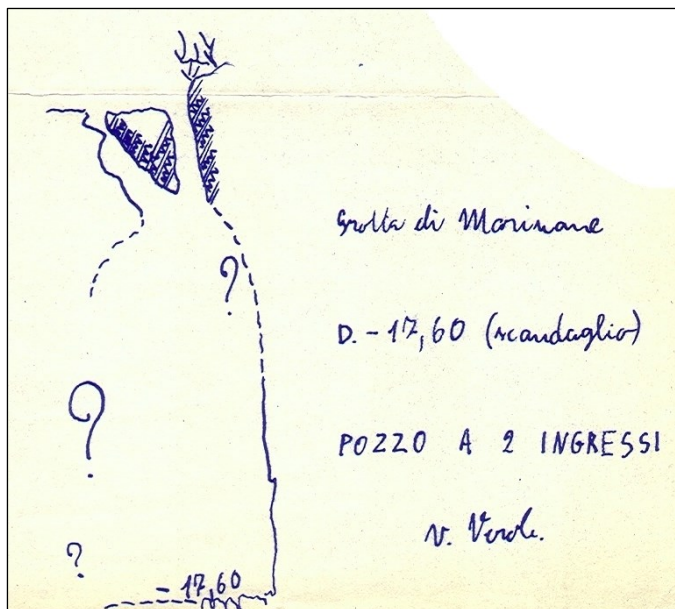 ?
Grotta di Marinane
D. - 17,60 (scandaglio)
?
POZZO A 2 INGRESSI
V. Verole.
?
- 17,60